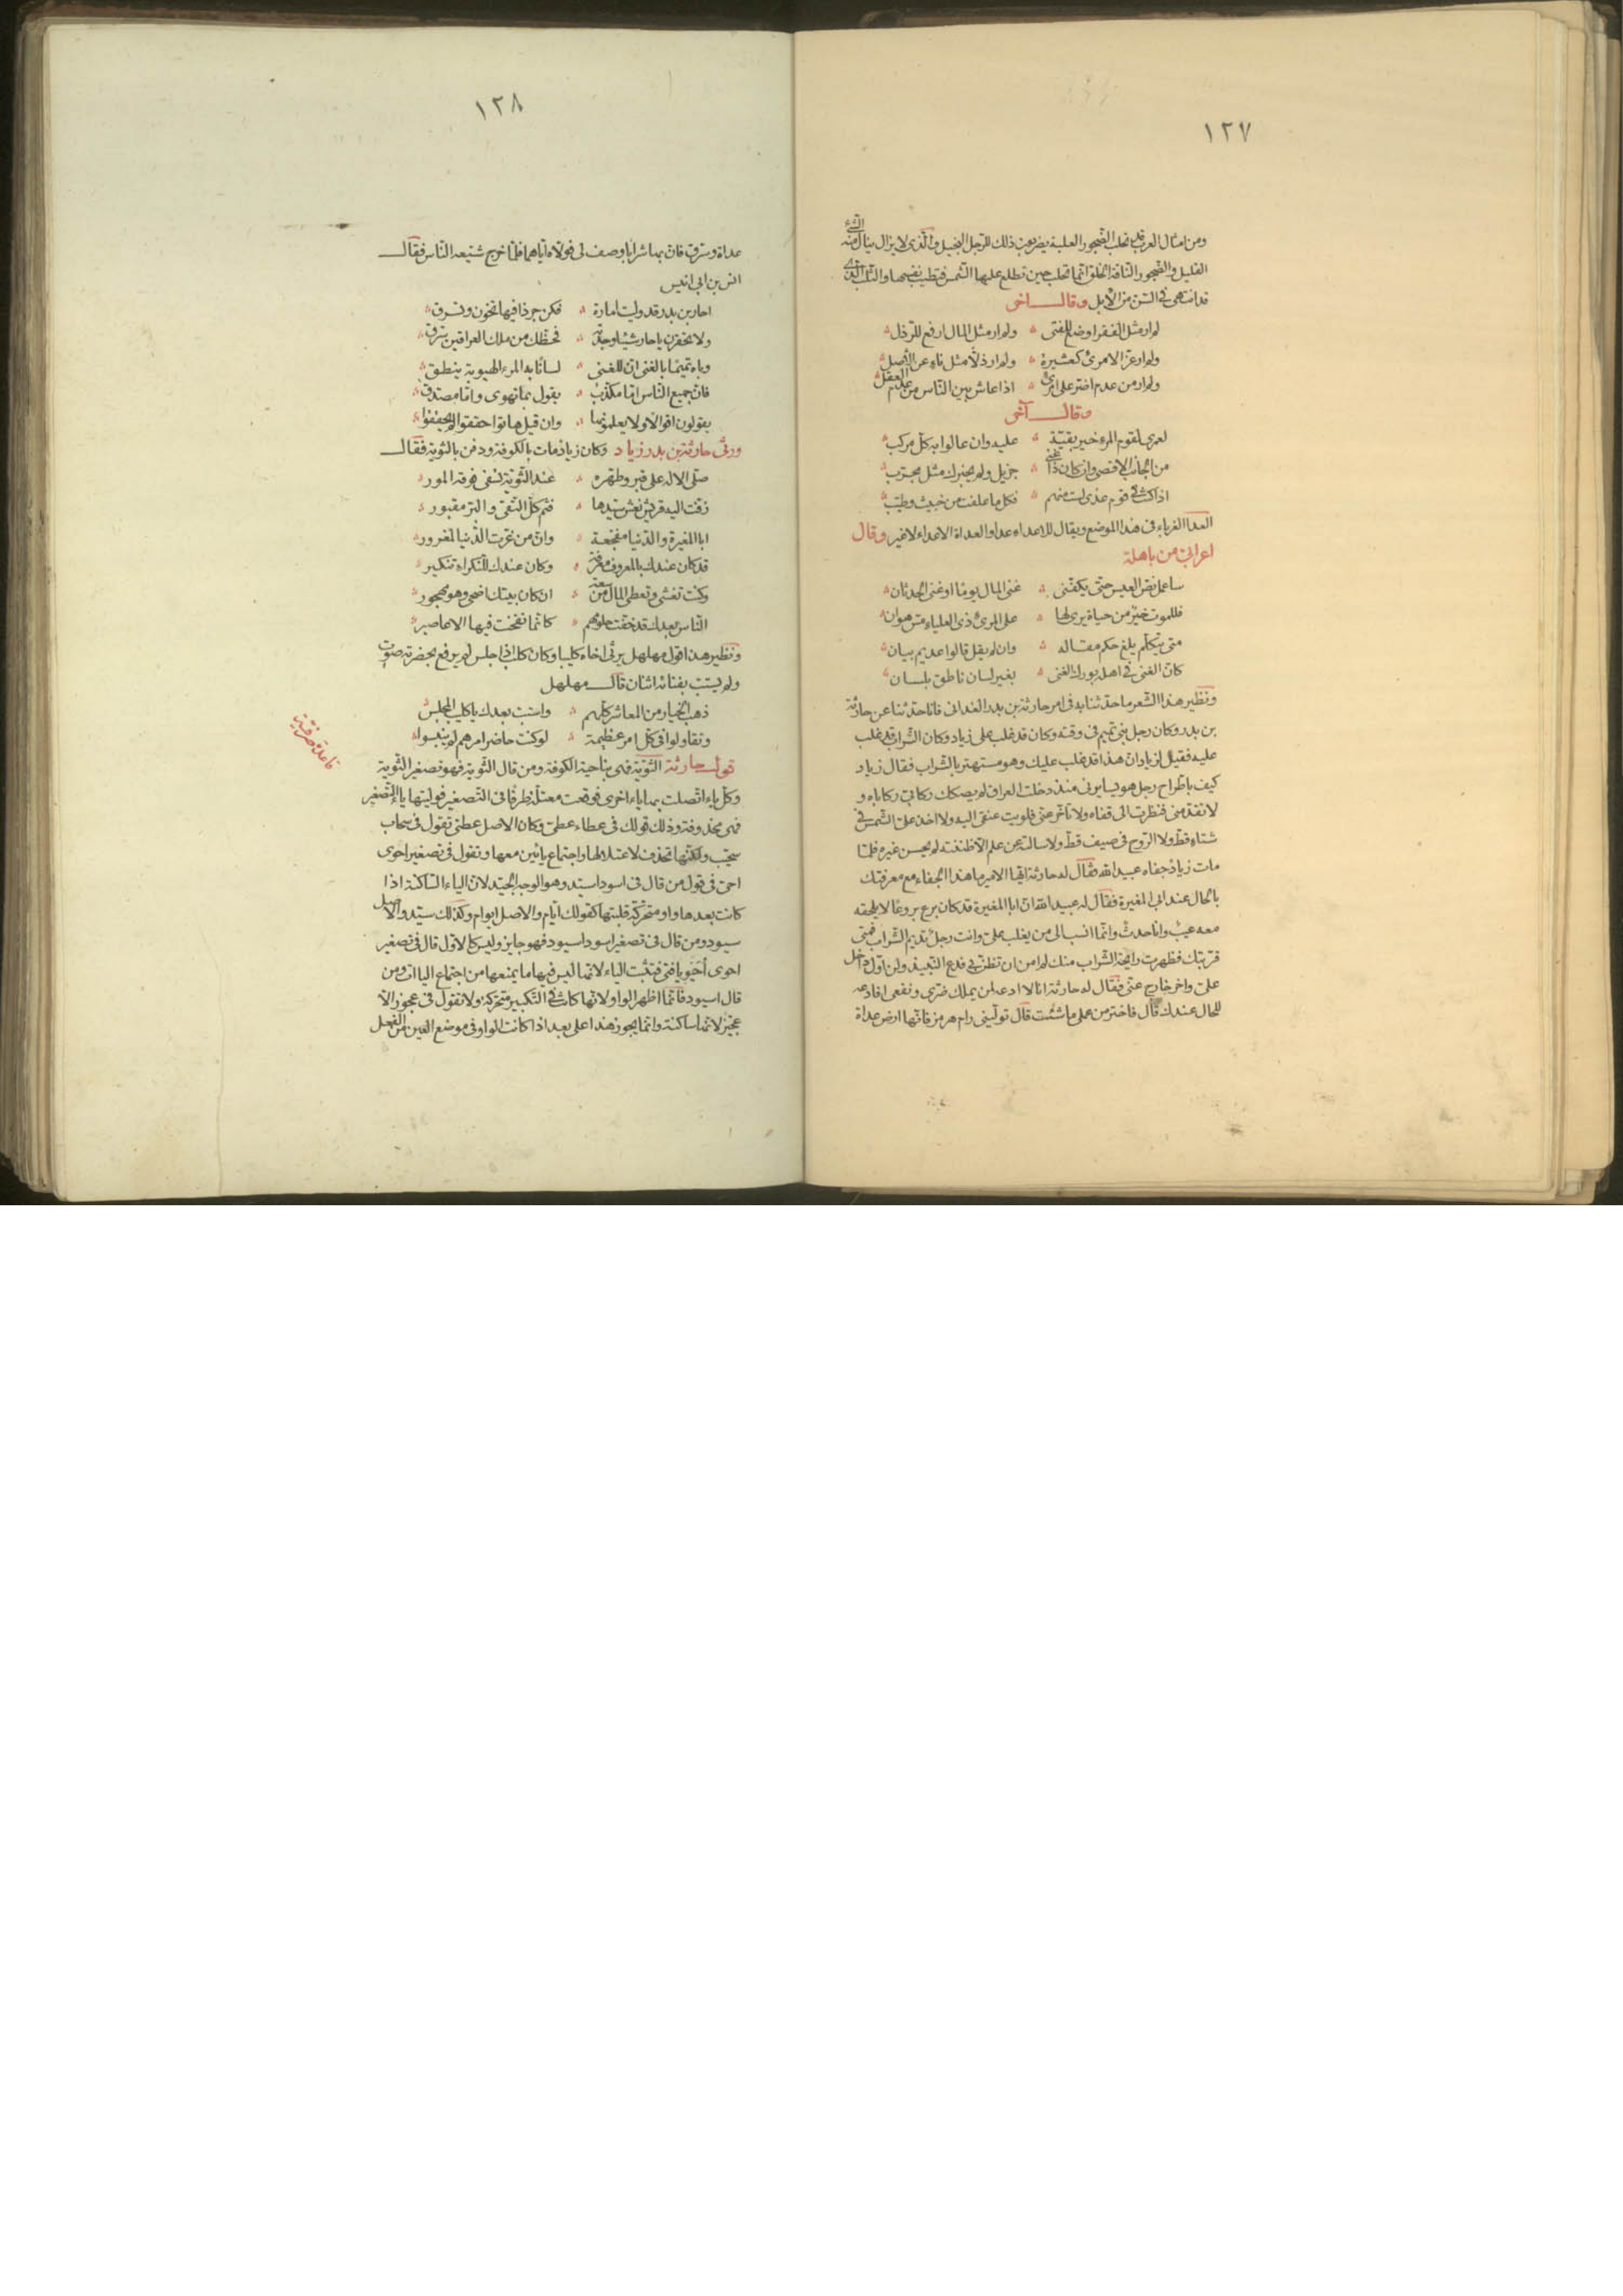 ١٢٧
ومن امثال العرب قد تحلب الضجور العلبة يضربون ذلك للرجل البخيل الذى لا يزال ينال منه الشئ
القليل والضجور الناقة انما تحلب حين تطلع عليها الشمس فتطيب نفسها والناب التى
قد انتهى فى السن من الابل وقال اخر
لم ار مثل الفقر اوضع للفتى ۞ ولم ار مثل المال ارفع للرذل
ولم ار عزا لامرئ كعشيرة ۞ ولم ار ذلا مثل ناى عن الاصل
ولم ار من عدم اضر على امرئ ۞ اذا عاش بين الناس من عدم العقل
وقال آخر
لعمرى لقوم المرء خير بقية ۞ عليه وان عالوا به كل مركب
من الجانب الاقصى وان كان ذا غنى ۞ جزيل ولم يخبرك مثل مجرب
اذا كنت فى قوم عدى لست منهم ۞ فكل ما علفت من خبيث وطيب
العدا الغرباء فى هذا الموضع ويقال للاعداء عدا والعداة الاعداء لا غير وقال
اعرابى من باهلة
ساعمل نص العيس حتى يكفنى ۞ غنى المال يوما او غنى الحدثان
فللموت خير من حياة يرى لها ۞ على المرئ ذى العلياء مس هوان
متى يتكلم يلغ حكم مقاله ۞ وان لم يقل قالوا عديم بيان
كان الغنى فى اهله بورك الغنى ۞ بغير لسان ناطق بلسان
ونظير هذا الشعر ما حدثنا به فى امر حارثة بن بدر الغدانى فانا حدثنا عن حارثة
بن بدر وكان رجل بنى تميم فى وقته وكان قد غلب على زياد وكان الشراب قد غلب
عليه فقيل لزياد ان هذا قد غلب عليك وهو مستهتر بالشراب فقال زياد
كيف باطراح رجل هو يسايرنى منذ دخلت العراق لم يصكك ركابى ركاباه و
لا تقدمنى فنظرت الى قفاه ولا تاخر عنى فلويت عنقى اليه ولا اخذ على الشمس فى
شتاء قط ولا الروح فى صيف قط ولا سالته عن علم الا ظننته لم يحسن غيره فلما
مات زياد جفاه عبيد الله فقال له حارثة ايها الامير ما هذا الجفاء مع معرفتك
بالحال عند ابى المغيرة فقال له عبيد الله ان ابا المغيرة قد كان برع بروعا لا يلحقه
معه عيب وانا حدث وانما انسب الى من يغلب على وانت رجل نديم الشراب فمتى
قربتك فظهرت رايحة الشراب منك لم امن ان تظن بى فدع النبيذ وكن اول داخل
على واخر خارج عنى فقال له حارثة انا لا ادعه لمن يملك ضرى ونفعى افادعه
للحال عندك قال فاختر من عملى ما شئت قال تولينى رام هرمز فانها ارض عداة
١٢٨
عداة وسرق فان بها شرابا وصف لى فولاه اياهما فلما خرج شيعه الناس فقال
انس بن ابى انيس
احار بن بدر قد وليت امارة ۞ فكن جرذا فيها تخون وتسرق
ولا تحقرن يا حار شيئا وجدته ۞ فحظك من ملك العراقين سرق
وباه تميما بالغنى ان للغنى ۞ لسانا به المرء الهيوبة ينطق
فان جميع الناس اما مكذب ۞ يقول بما تهوى واما مصدق
يقولون اقوالا ولا يعلمونها ۞ وان قيل هاتوا حققوا لم يحققوا
ورثى حارثة بن بدر زياد وكان زياد مات بالكوفة ودفن بالثوية فقال
صلى الاله على قبر وطهره ۞ عند الثوية تسفى فوقه المور
زفت اليه قريش نعش سيدها ۞ فثم كل التقى والبر مقبور
ابا المغيرة والدنيا مفجعة ۞ وان من غرت الدنيا لمغرور
قد كان عندك بالمعروف معرفة ۞ وكان عندك للنكراء تنكير
وكنت تغشى وتعطى المال من سعة ۞ ان كان بيتك اضحى وهو مهجور
الناس بعدك قد خفت حلومهم ۞ كانما نفخت فيها الاعاصير
ونظير هذا قول مهلهل يرثى اخاه كليبا وكان كليب اذا جلس لم يرفع بحضرته صوت
ولم يستب بفنائه اثنان قال مهلهل
ذهب الخيار من المعاشر كلهم ۞ واستب بعدك يا كليب المجلس
وتقاولوا فى كل امر عظيمة ۞ لو كنت حاضر امرهم لم ينبسوا
قول حارثة الثوية فهى بناحية الكوفة ومن قال الثوية فهو تصغير الثوية
وكل ياء اتصلت بها ياء اخرى فوقعت معتلة طرفا فى التصغير فوليتها ياء التصغير
فهى محذوفة وذلك قولك فى عطاء عطى وكان الاصل عطيى تقول فى سحاب
سحيب ولكنها تحذف لاعتلالها واجتماع يائين معها وتقول فى تصغير احوى
احى فى قول من قال فى اسود اسيد وهو الوجه الجيد لان الياء الساكنة اذا
كانت بعدها واو متحركة قلبتها كقولك ايام والاصل ايوام وكذلك سيد والاصل
سيود ومن قال فى تصغير اسود اسيود فهو جايز وليس كالاول قال فى تصغير
احوى أحَيْوٍ يا فتى فتثبت الياء لانها ليس فيها ما يمنعها من اجتماع الياات ومن
قال اسيود فانما اظهر الواو لانها كانت فى التكبير متحركة ولا تقول فى عجوز الا
عجيّز لانها ساكنة وانما يجوز هذا على بعد اذا كانت الواو فى موضع العين من الفعل
قاعدة صرفية